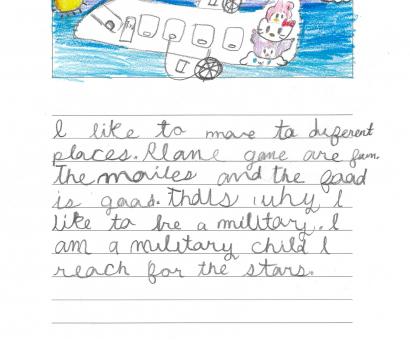 I like to move to different
places. Plane game are fun.
The movies and the food
is good. Thats why I
like to be a military. I
am a military child I
reach for the stars.